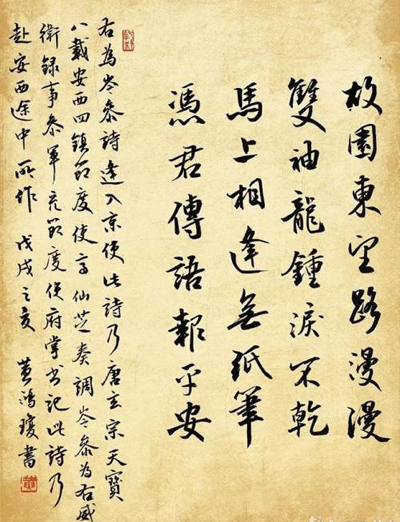 故園東望路漫漫
雙袖龍鍾淚不乾
馬上相逢無紙筆
馮君傳語報平安
右為岑參詩逢入京使此詩乃唐玄宗天寶
八載安西四鎮節度使高仙芝奏調岑參為右威
衛錄事參軍充節度使府掌書記此詩乃
赴安西途中所作 戊戌之亥 黃鴻瓊書